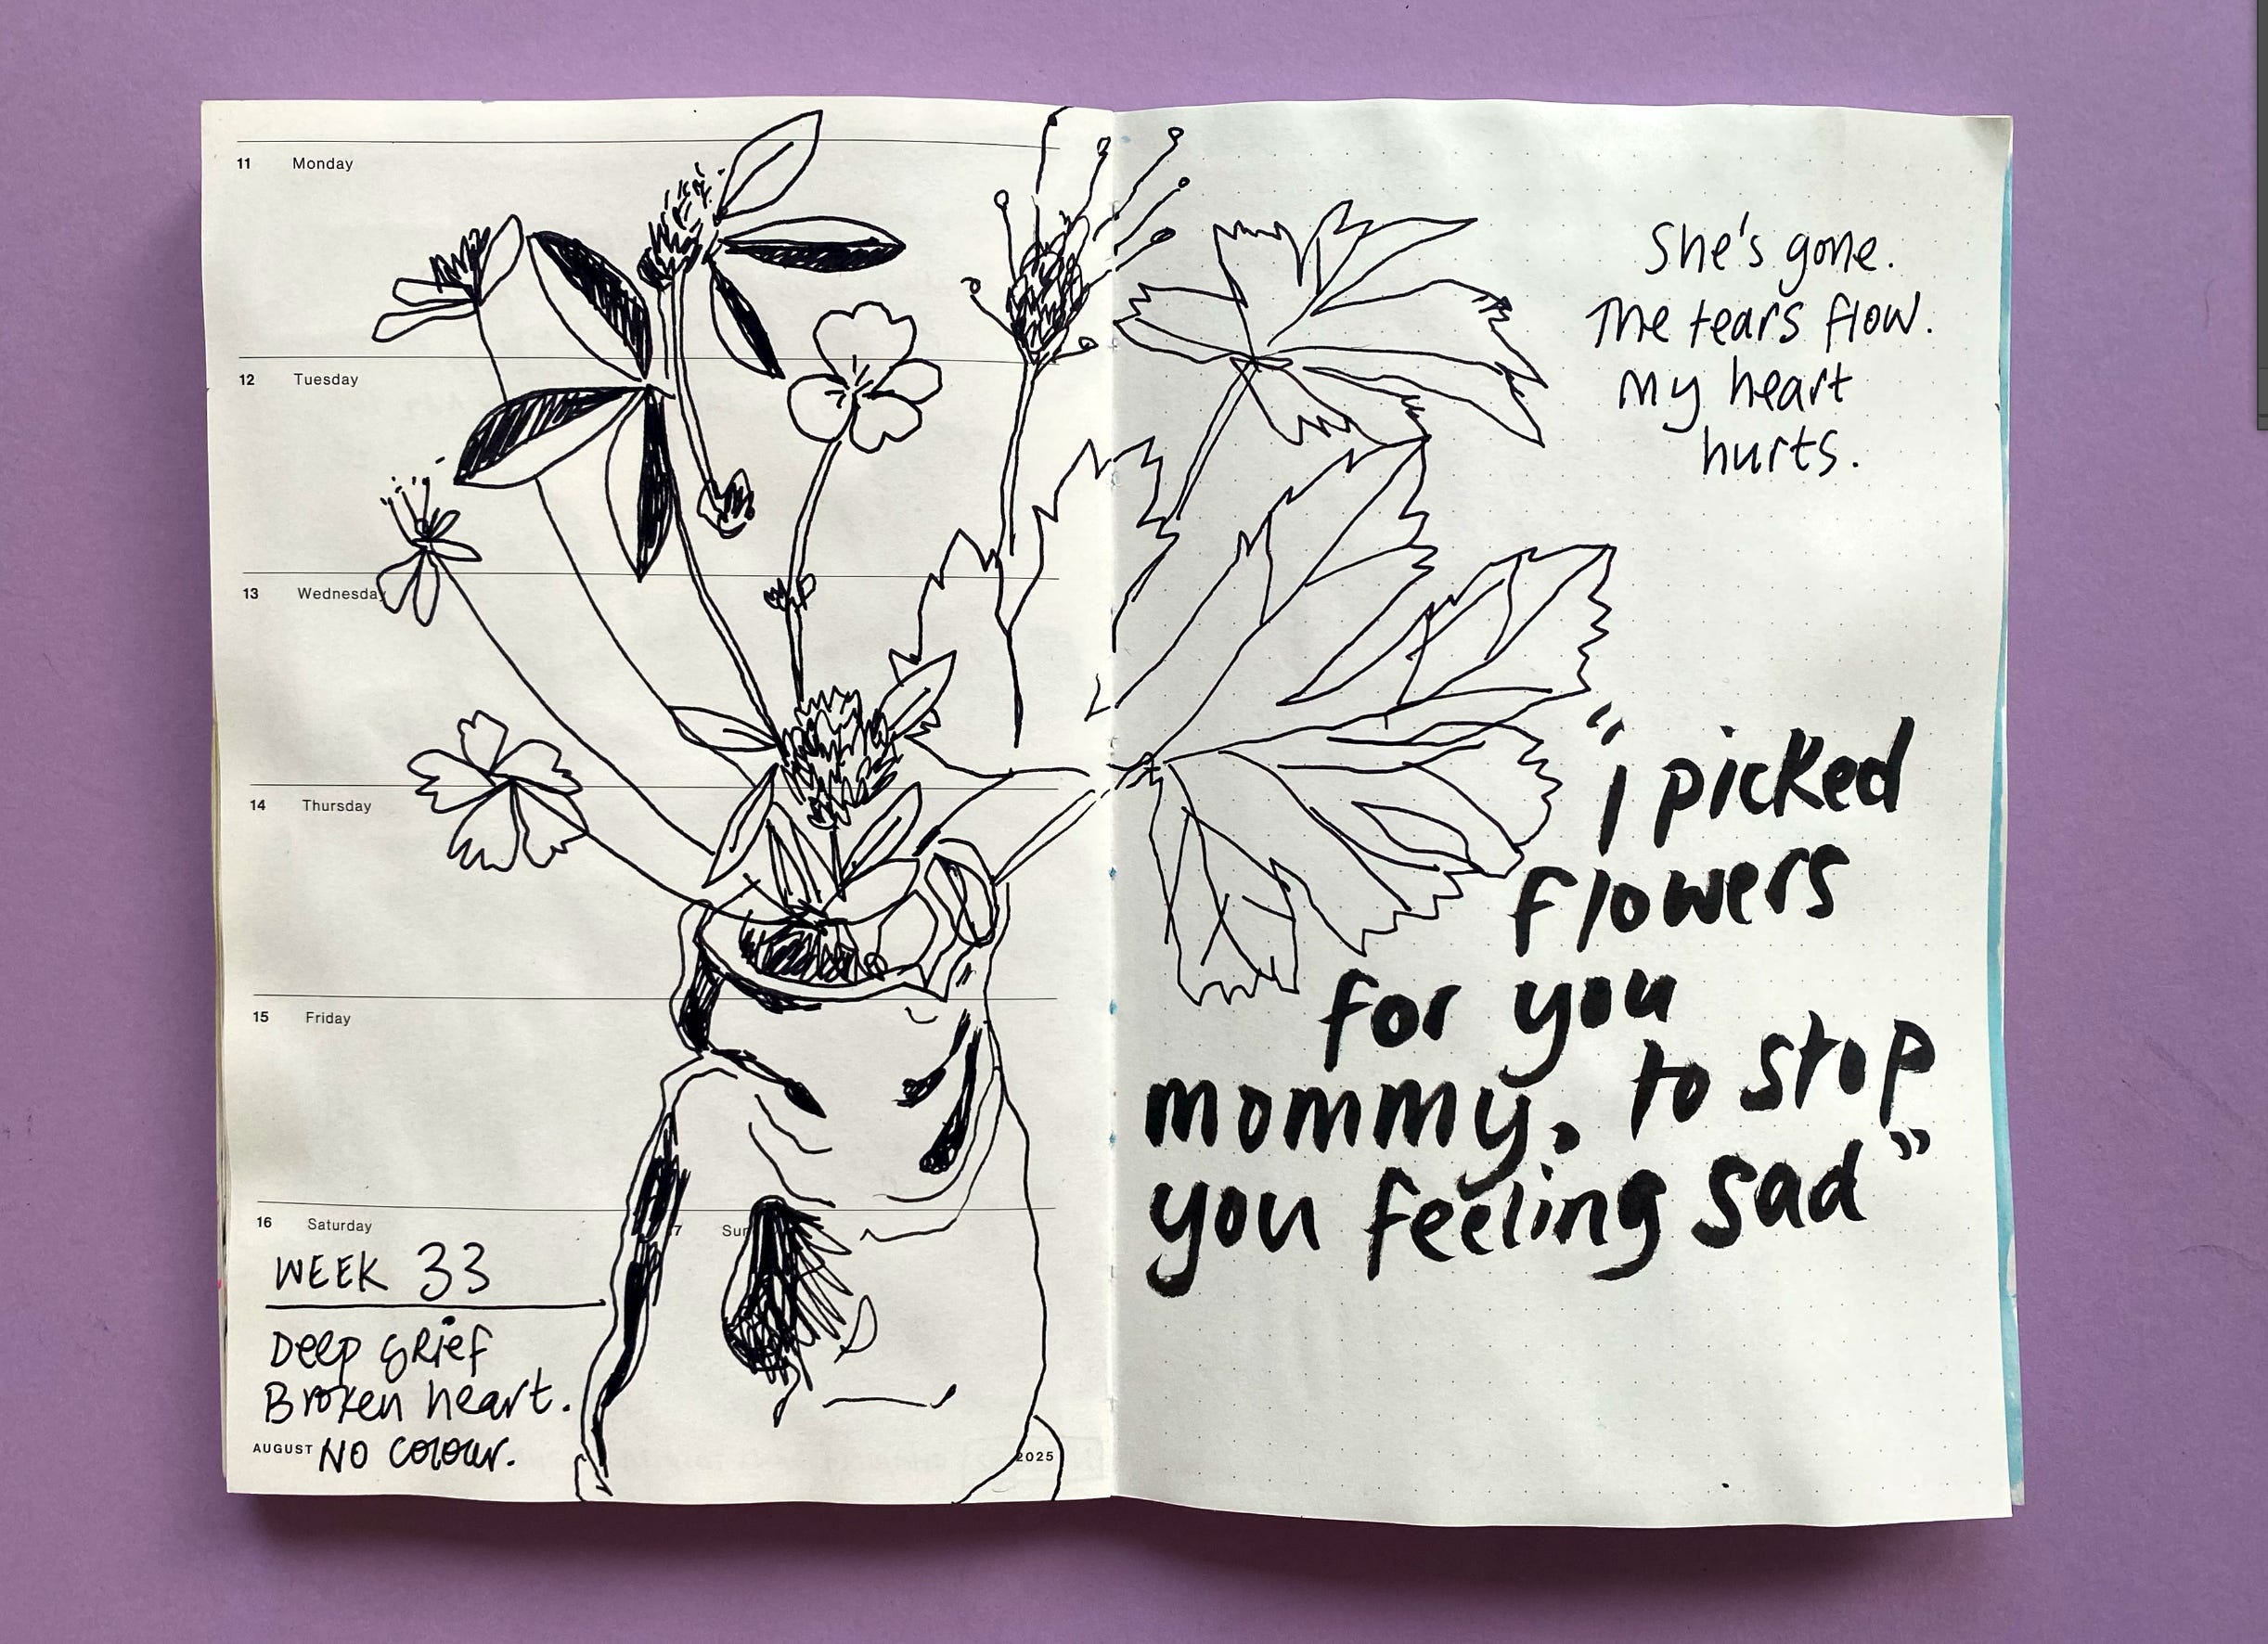 11 Monday
12 Tuesday
13 Wednesday
14 Thursday
15 Friday
16 Saturday 7 Sun
WEEK 33
Deep grief
Broken heart.
AUGUST NO colour.
2025
She's gone.
The tears flow.
My heart
hurts.
"I picked
flowers
for you
mommy. to stop
you feeling sad"